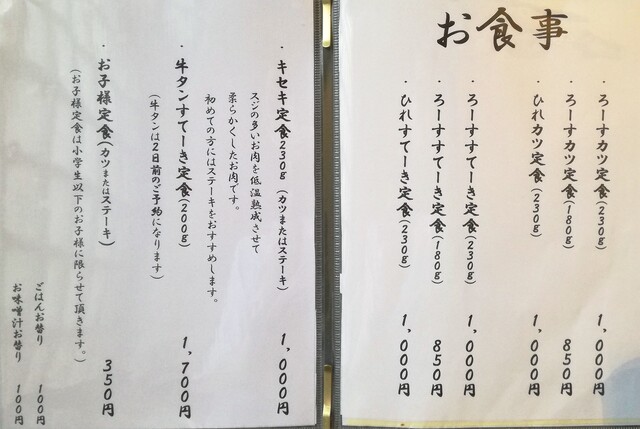 お食事
・ろーすカツ定食(230g) 1,000円
・ろーすカツ定食(180g) 850円
・ひれカツ定食(230g) 1,000円
・ろーすすてーき定食(230g) 1,000円
・ろーすすてーき定食(180g) 850円
・ひれすてーき定食(230g) 1,000円
・キセキ定食230g (カツまたはステーキ) 1,000円
スジの多いお肉を低温熟成させて
柔らかくしたお肉です。
初めての方にはステーキをおすすめします。
・牛タンすてーき定食(200g) 1,700円
(牛タンは2日前のご予約になります)
・お子様定食(カツまたはステーキ) 350円
(お子様定食は小学生以下のお子様に限らせて頂きます。)
ごはんお替り 100円
お味噌汁お替り 100円